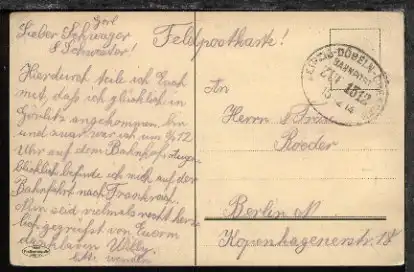 Lieber Schwager
& Schwester!
Hierdurch teile ich Euch
mit, daß ich glücklich in
Görlitz angekommen bin
und zwar war ich um 1/2 12
Uhr auf dem Bahnhof. Augen-
blicklich befinde ich mich auf der
Bahnfahrt nach
Nun seid vielmals recht herz-
lich gegrüßt von Eurem
Willy
bitte wenden
Feldpostkarte!
LEIPZIG-DÖBELN-DRESDEN
BAHNPOST
ZUG 1512
An
Herrn
Roeder
Berlin N
Kopenhagenerstr. 18